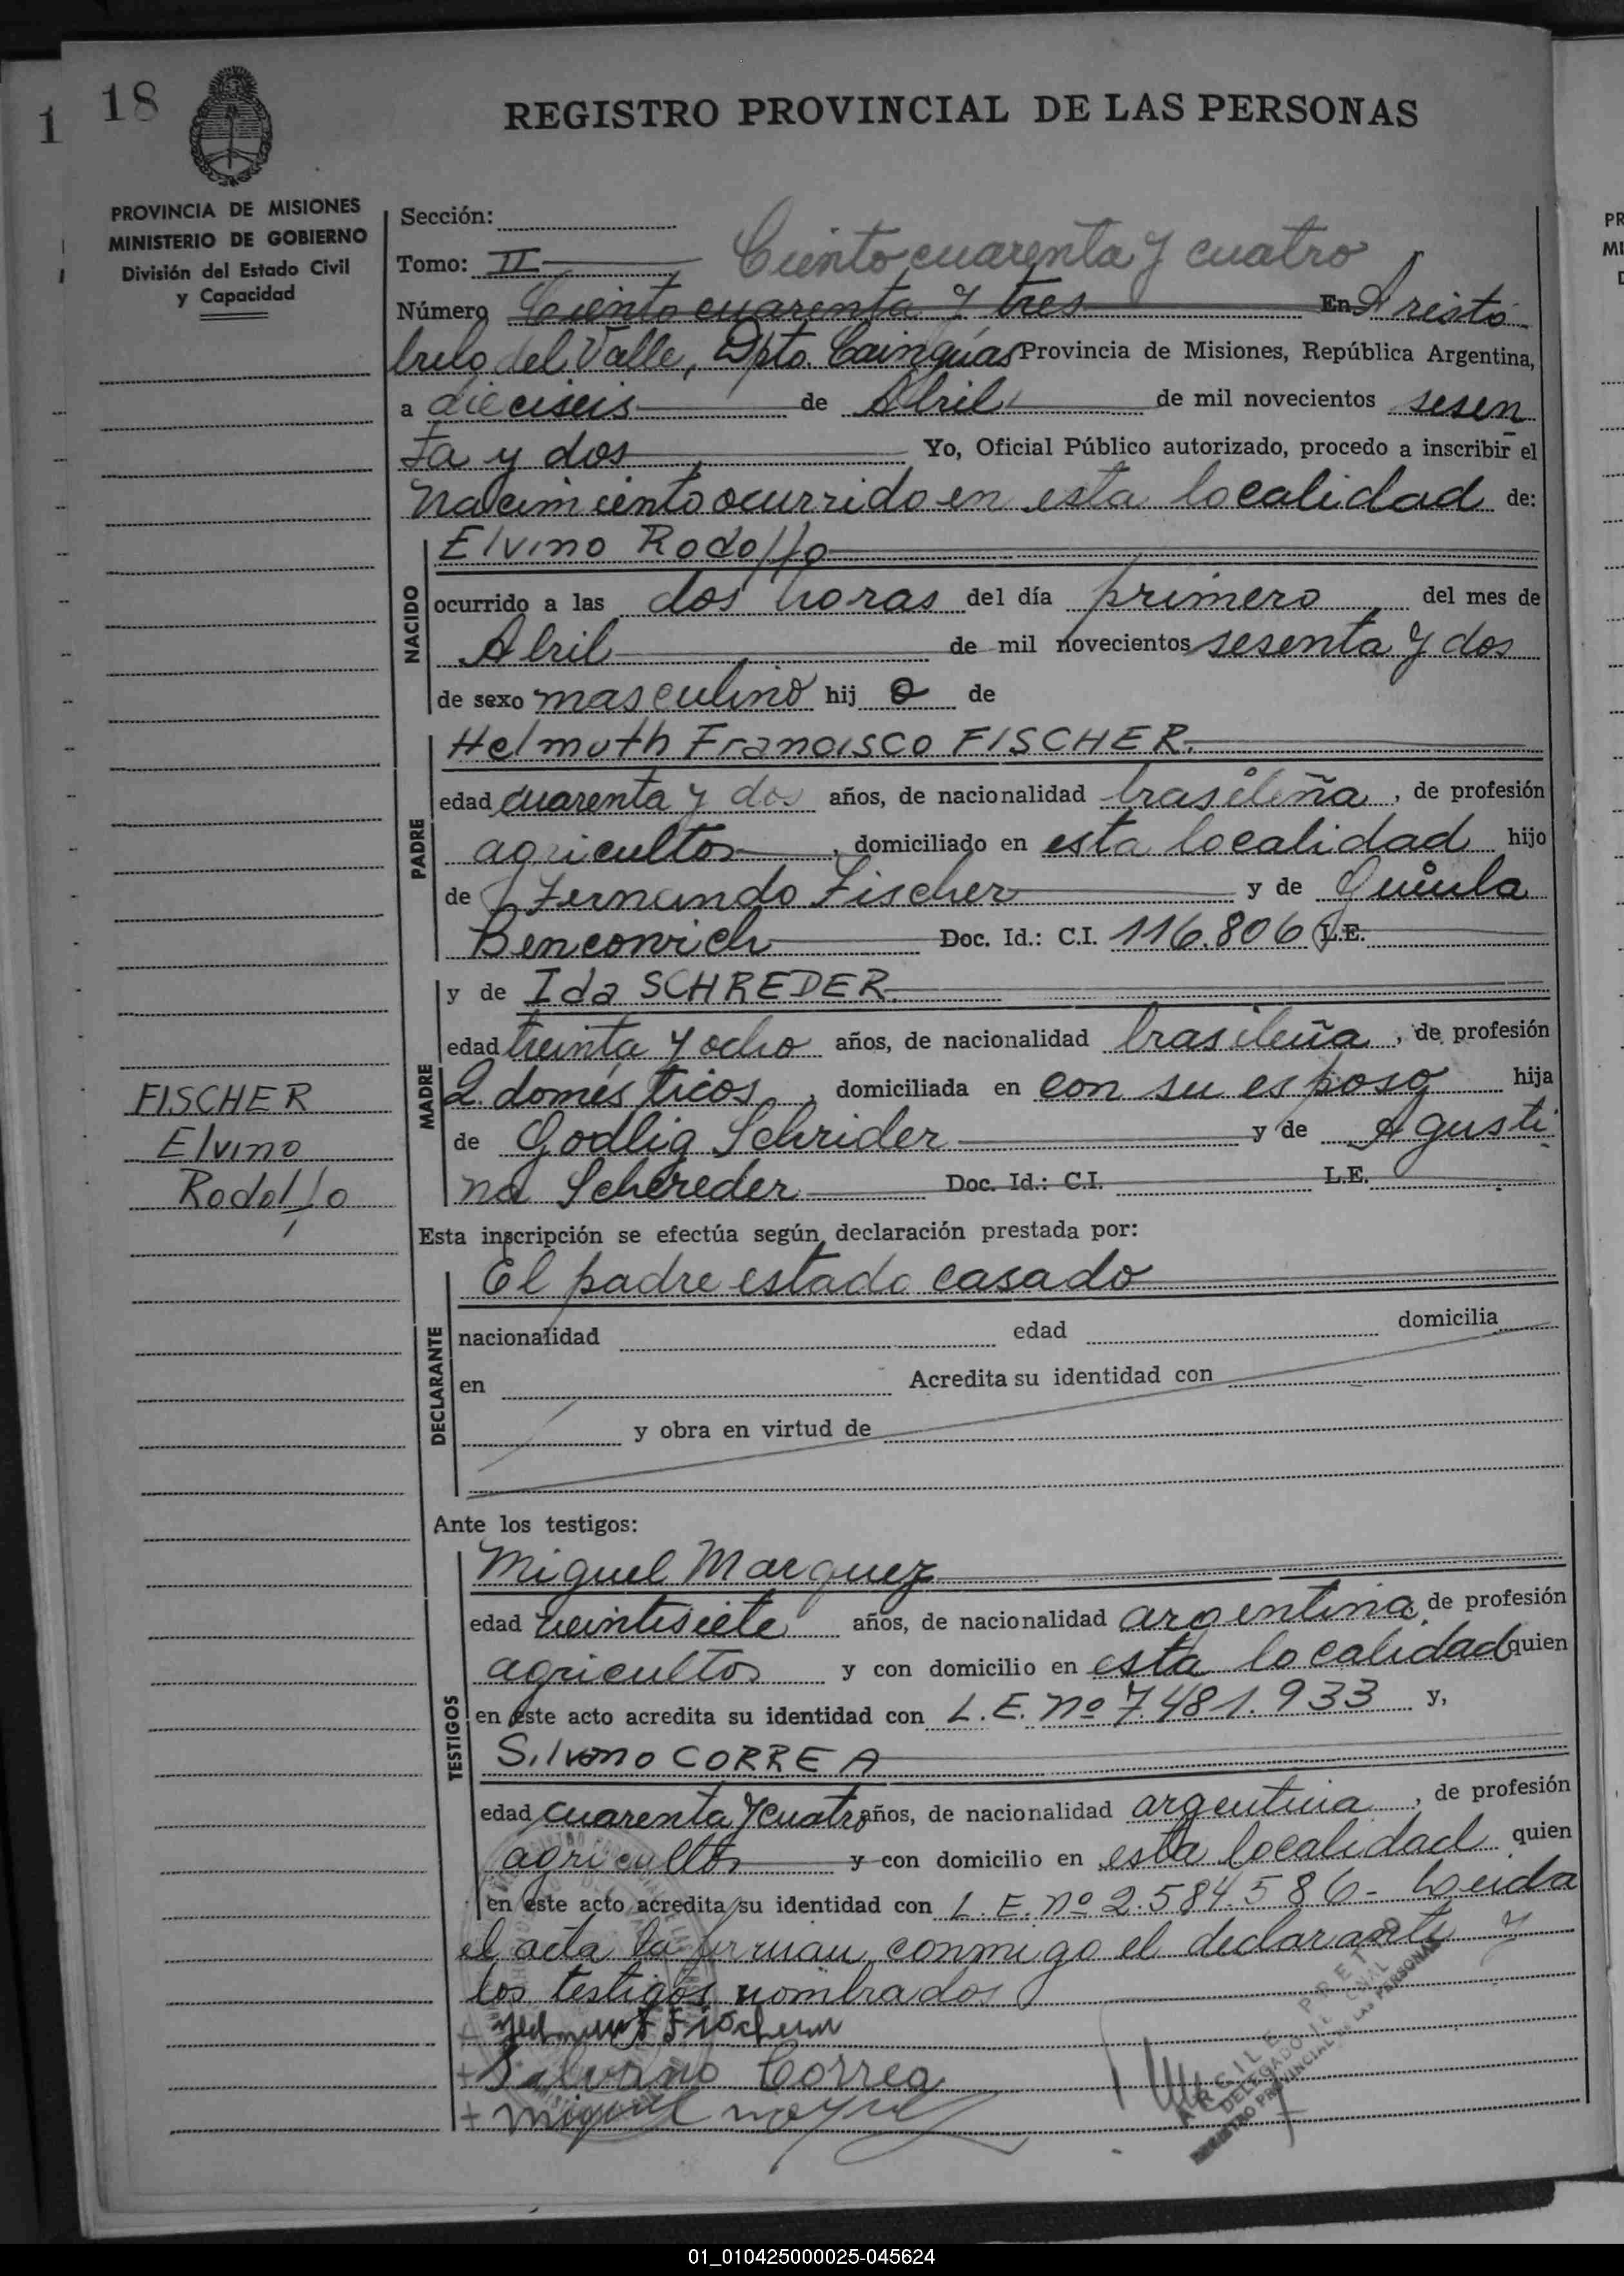 1
18
REGISTRO PROVINCIAL DE LAS PERSONAS
PROVINCIA DE MISIONES
MINISTERIO DE GOBIERNO
División del Estado Civil
y Capacidad
FISCHER
Elvino
Rodolfo
Sección:
Tomo: II
Ciento cuarenta y cuatro
Número Ciento cuarenta y tres En Aristo-
bulo del Valle, Dpto. Cainguas Provincia de Misiones, República Argentina,
a dieciseis de Abril de mil novecientos sesen
ta y dos Yo, Oficial Público autorizado, procedo a inscribir el
nacimiento ocurrido en esta localidad de:
NACIDO
Elvino Rodolfo
ocurrido a las dos horas del día primero del mes de
Abril de mil novecientos sesenta y dos
de sexo masculino hij o de
PADRE
Helmuth Francisco FISCHER.
edad cuarenta y dos años, de nacionalidad brasileña, de profesión
agricultor, domiciliado en esta localidad hijo
de Fernando Fischer y de
Doc. Id.: C.I. 116.806 L.E.
MADRE
y de Ida SCHREDER.
edad treinta y ocho años, de nacionalidad brasileña, de profesión
Q. domésticos, domiciliada en con su esposo hija
de Godlig Schrider y de Agusti
na Schereder Doc. Id.: C.I. L.E.
Esta inscripción se efectúa según declaración prestada por:
DECLARANTE
El padre estado casado
nacionalidad edad domicilia
en Acredita su identidad con
y obra en virtud de
Ante los testigos:
TESTIGOS
Miguel Marquez
edad veintisiete años, de nacionalidad argentina, de profesión
agricultor y con domicilio en esta localidad quien
en este acto acredita su identidad con L.E. nº 7.481.933 y,
Silvano CORREA
edad cuarenta y cuatro años, de nacionalidad argentina, de profesión
agricultor y con domicilio en esta localidad quien
en este acto acredita su identidad con L.E. nº 2.584.586- Leida
el acta la firman conmigo el declarante y
los testigos nombrados
Correa
DELEGADO
REGISTRO PROVINCIAL DE LAS PERSONAS
01_010425000025-045624